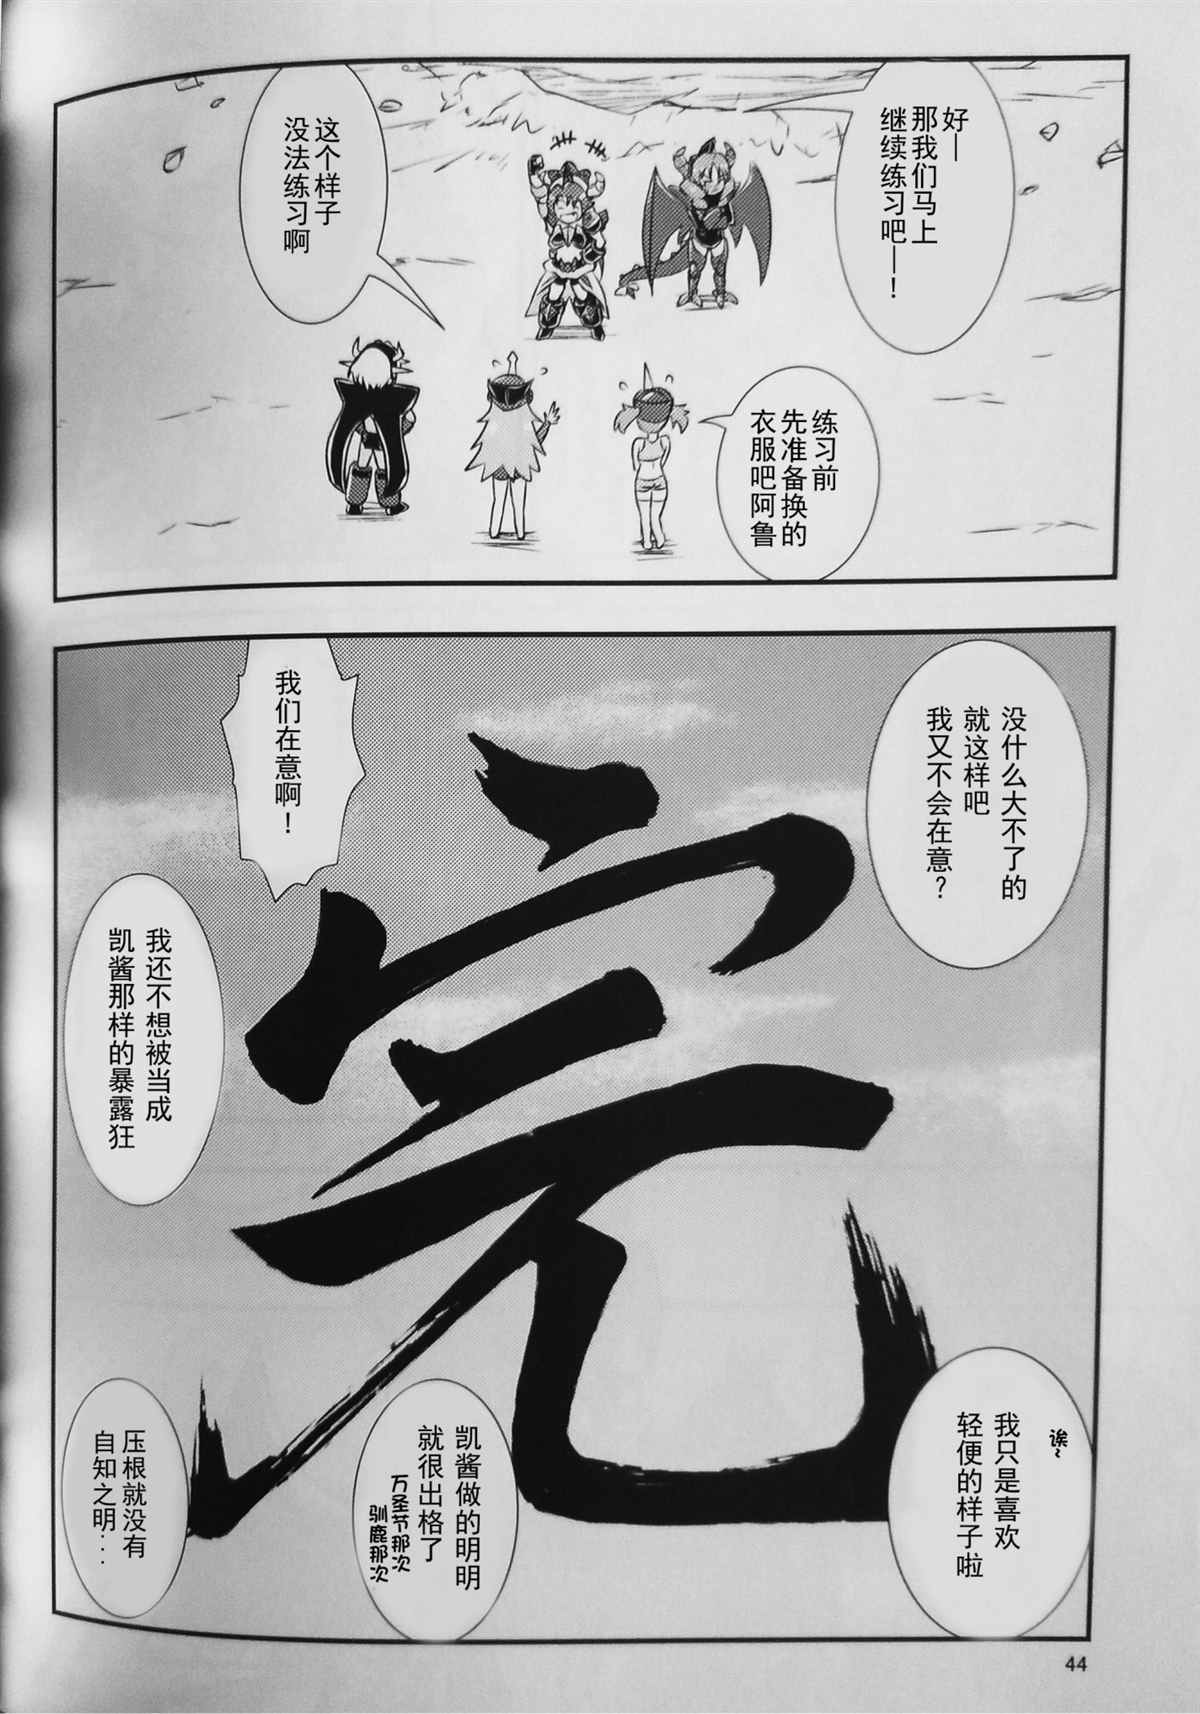 好—
那我们马上
继续练习吧—！
这个样子
没法练习啊
练习前
先准备换的
衣服吧阿鲁
没什么大不了的
就这样吧
我又不会在意？
我们在意啊！
完
我还不想被当成
凯酱那样的暴露狂
诶~
我只是喜欢
轻便的样子啦
凯酱做的明明
就很出格了
万圣节那次
驯鹿那次
压根就没有
自知之明...
44